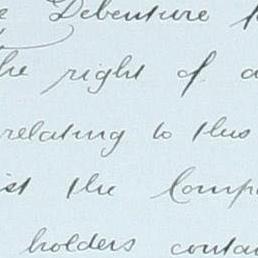 Debenture
the right of a
relating to this
the Comp
holders conta